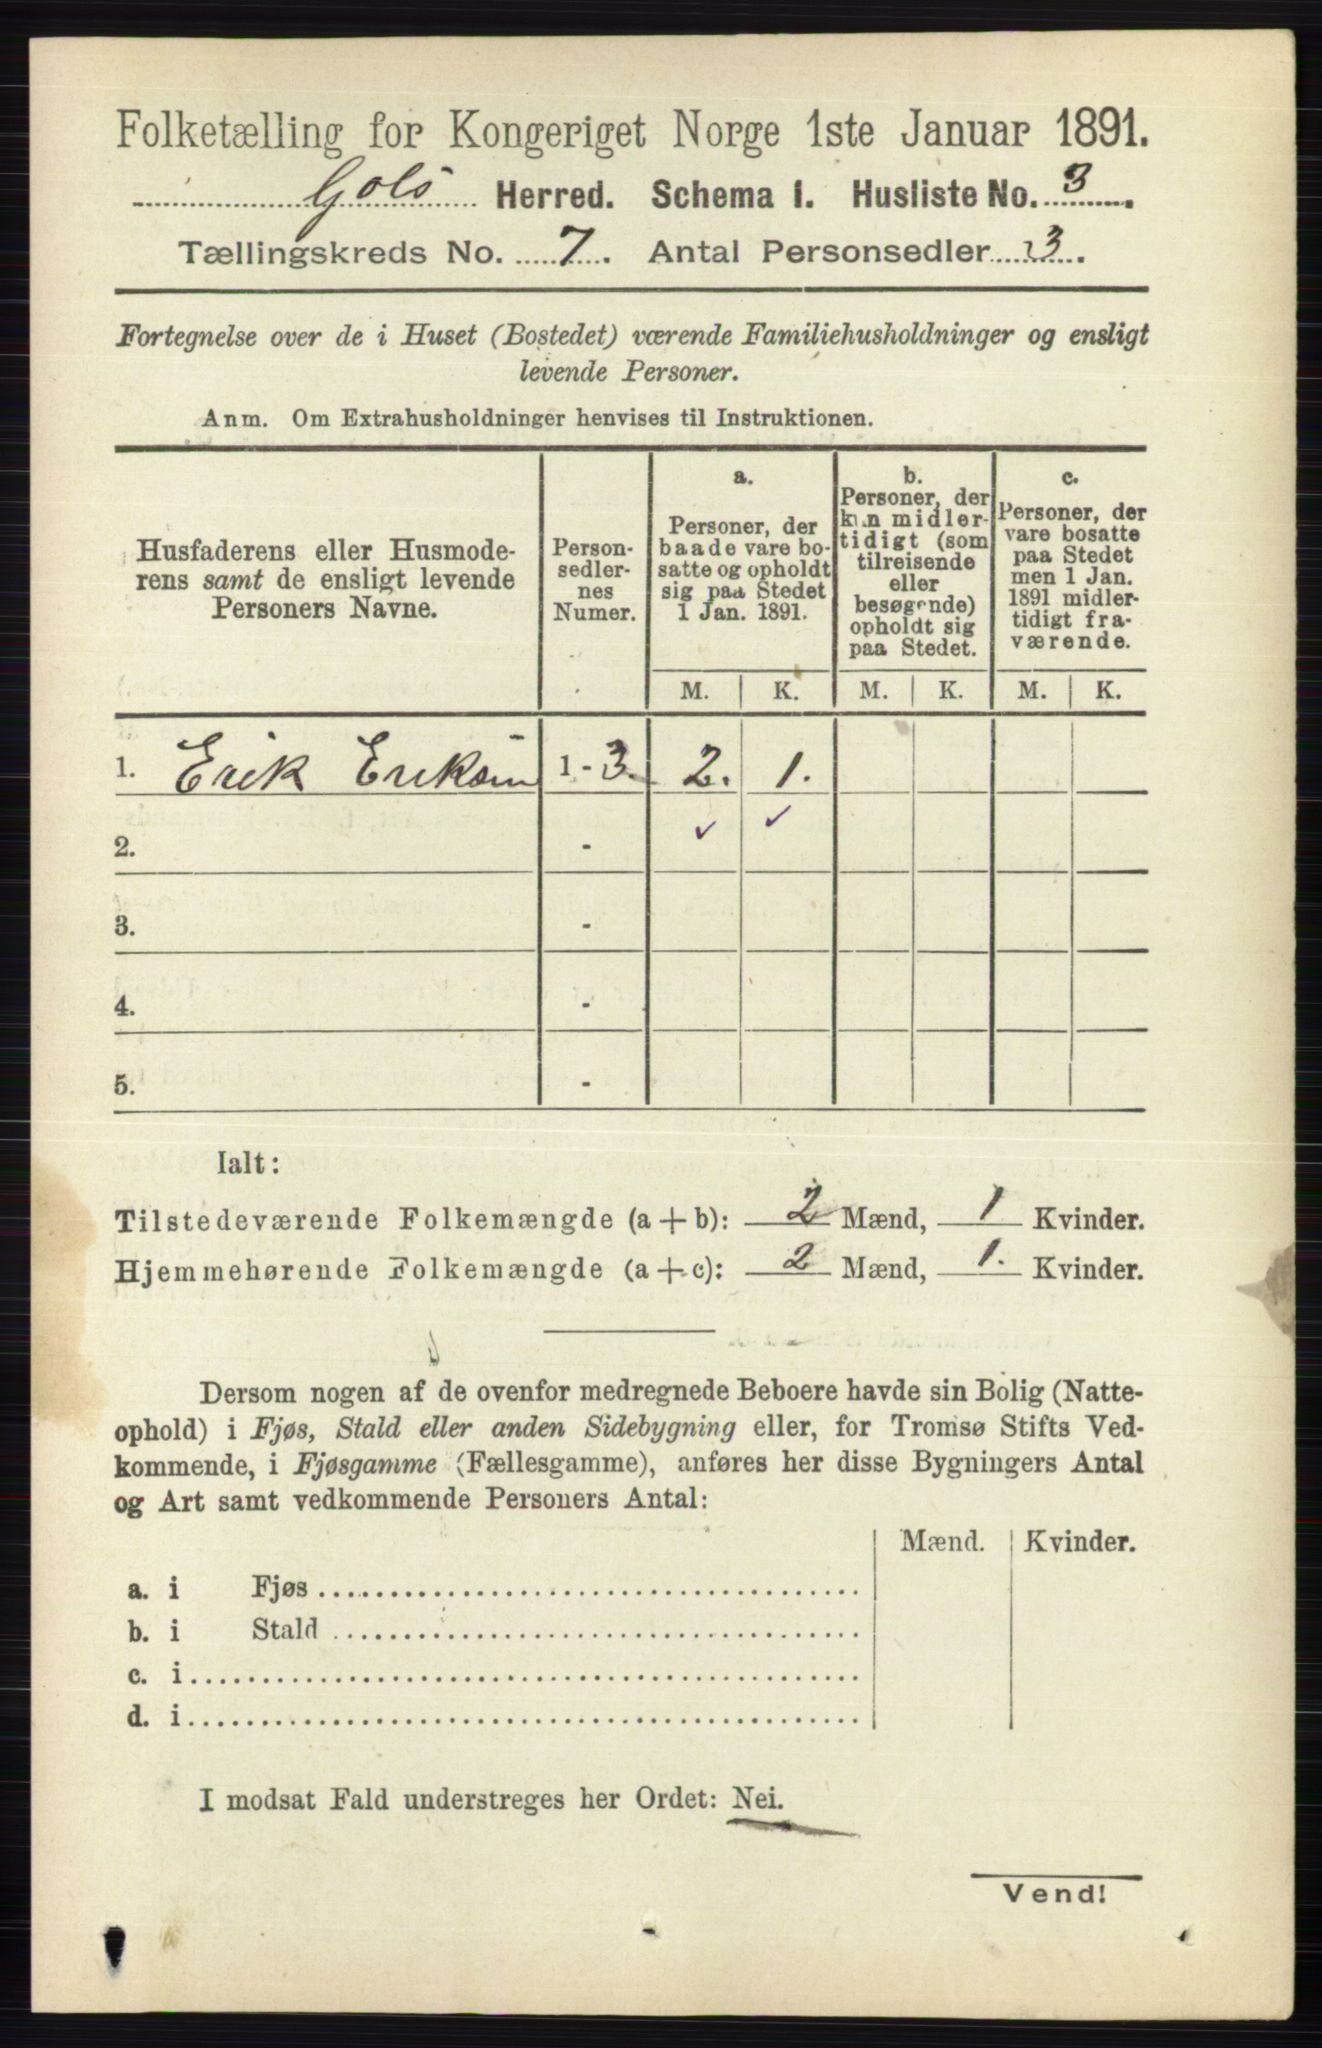 Folketælling for Kongeriget Norge 1ste Januar 1891.
Gols Herred. Schema I. Husliste No. 3.
Tællingskreds No. 7. Antal Personsedler 3.
Fortegnelse over de i Huset (Bostedet) værende Familiehusholdninger og ensligt
levende Personer.
Anm. Om Extrahusholdninger henvises til Instruktionen.
Husfaderens eller Husmode-
rens samt de ensligt levende
Personers Navne.
Person-
sedler-
nes
Numer.
a.
Personer, der
baade vare bo-
satte og opholdt
sig paa Stedet
1 Jan. 1891.
b.
Personer, der
kun midler-
tidigt (som
tilreisende
eller
besøgende)
opholdt sig
paa Stedet.
c.
Personer, der
vare bosatte
paa Stedet
men 1 Jan.
1891 midler-
tidigt fra-
værende.
M. K. M. K. M. K.
1. Erik Eriksøn 1 - 3. 2. 1.
2. -
3. -
4. -
5. -
Ialt:
Tilstedeværende Folkemængde (a + b): 2 Mænd, 1 Kvinder.
Hjemmehørende Folkemængde (a + c): 2 Mænd, 1. Kvinder.
Dersom nogen af de ovenfor medregnede Beboere havde sin Bolig (Natte-
ophold) i Fjøs, Stald eller anden Sidebygning eller, for Tromsø Stifts Ved-
kommende, i Fjøsgamme (Fællesgamme), anføres her disse Bygningers Antal
og Art samt vedkommende Personers Antal:
Mænd. Kvinder.
a. i Fjøs
b. i Stald
c. i
d. i
I modsat Fald understreges her Ordet: Nei.
Vend!